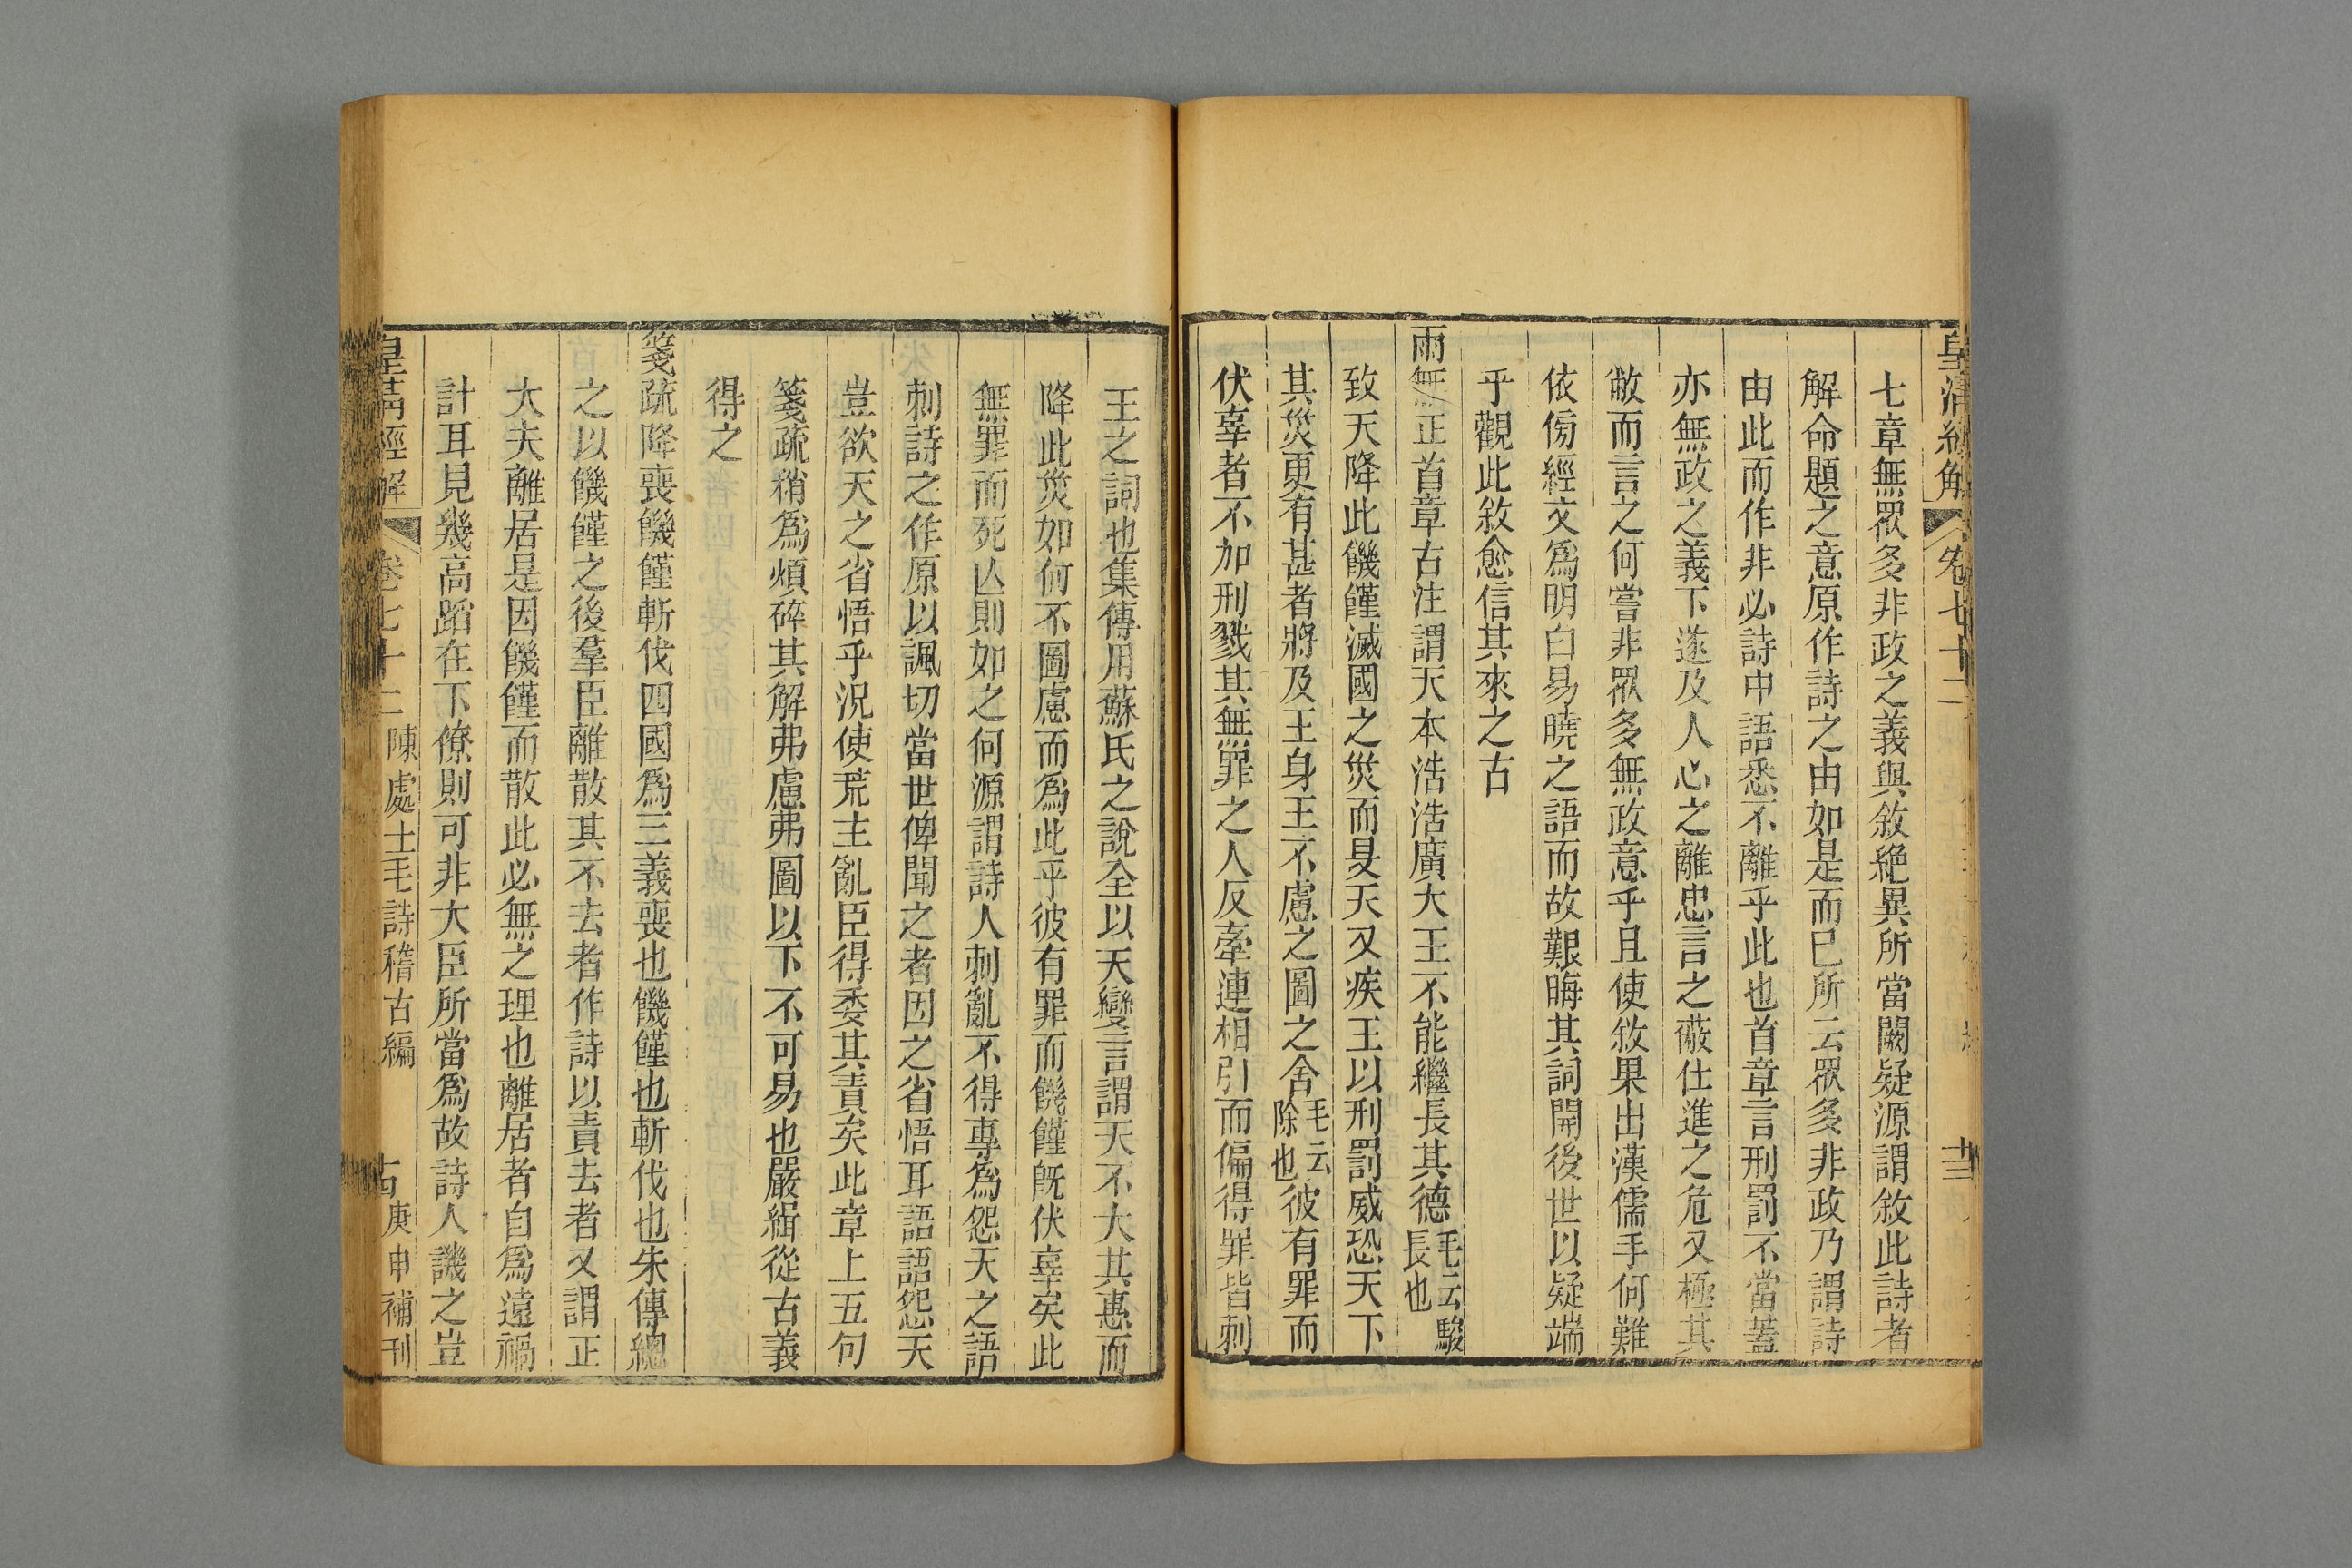 皇清經解 卷七十二 十三
七章無眾多非政之義與敘絶異所當闕疑源謂敘此詩者
解命題之意原作詩之由如是而已所云眾多非政乃謂詩
由此而作非必詩中語悉不離乎此也首章言刑罰不當蓋
亦無政之義下遂及人心之離忠言之蔽仕進之危又極其
敝而言之何嘗非眾多無政意乎且使敘果出漢儒手何難
依傍經文爲明白易曉之語而故艱晦其詞開後世以疑端
乎觀此敘愈信其來之古
雨無正首章古注謂天本浩浩廣大王不能繼長其德毛云駿長也
致天降此饑饉滅國之災而旻天又疾王以刑罰威恐天下
其災更有甚者將及王身王不慮之圖之舍毛云除也彼有罪而
伏辜者不加刑戮其無罪之人反牽連相引而偏得罪皆刺
王之詞也集傳用蘇氏之說全以天變言謂天不大其惠而
降此災如何不圖慮而爲此乎彼有罪而饑饉旣伏辜矣此
無罪而死亾則如之何源謂詩人刺亂不得專爲怨天之語
刺詩之作原以諷切當世俾聞之者因之省悟耳語語怨天
豈欲天之省悟乎況使荒主亂臣得委其責矣此章上五句
箋疏稍爲煩碎其解弗慮弗圖以下不可易也嚴緝從古義
得之
箋疏降喪饑饉斬伐四國爲三義喪也饑饉也斬伐也朱傳總
之以饑饉之後羣臣離散其不去者作詩以責去者又謂正
大夫離居是因饑饉而散此必無之理也離居者自爲遠禍
計耳見幾高蹈在下僚則可非大臣所當爲故詩人譏之豈
皇清經解 卷七十二 陳處士毛詩稽古編 古 庚申補刊